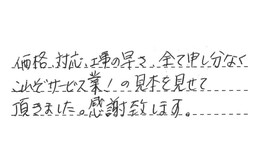 価格、対応、工事の早さ、全て申し分なく
これぞサービス業!の見本を見せて
頂きました。感謝致します。